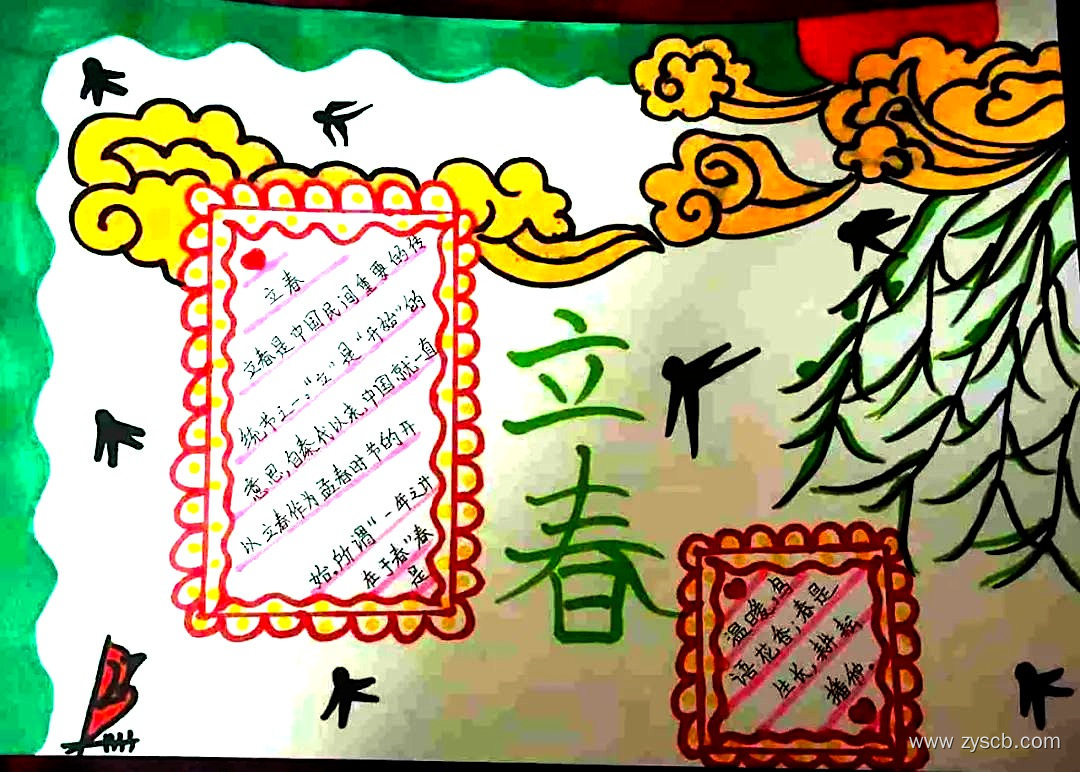 立春
立春是中国民间重要的传
统节之一。“立”是“开始”的
意思，自秦代以来，中国就一直
以立春作为孟春时节的开
始，所谓“一年之计
在于春”春
是
立春
温暖，鸟
语花香；春是
生长，耕耘
播种。
www.zyscb.com